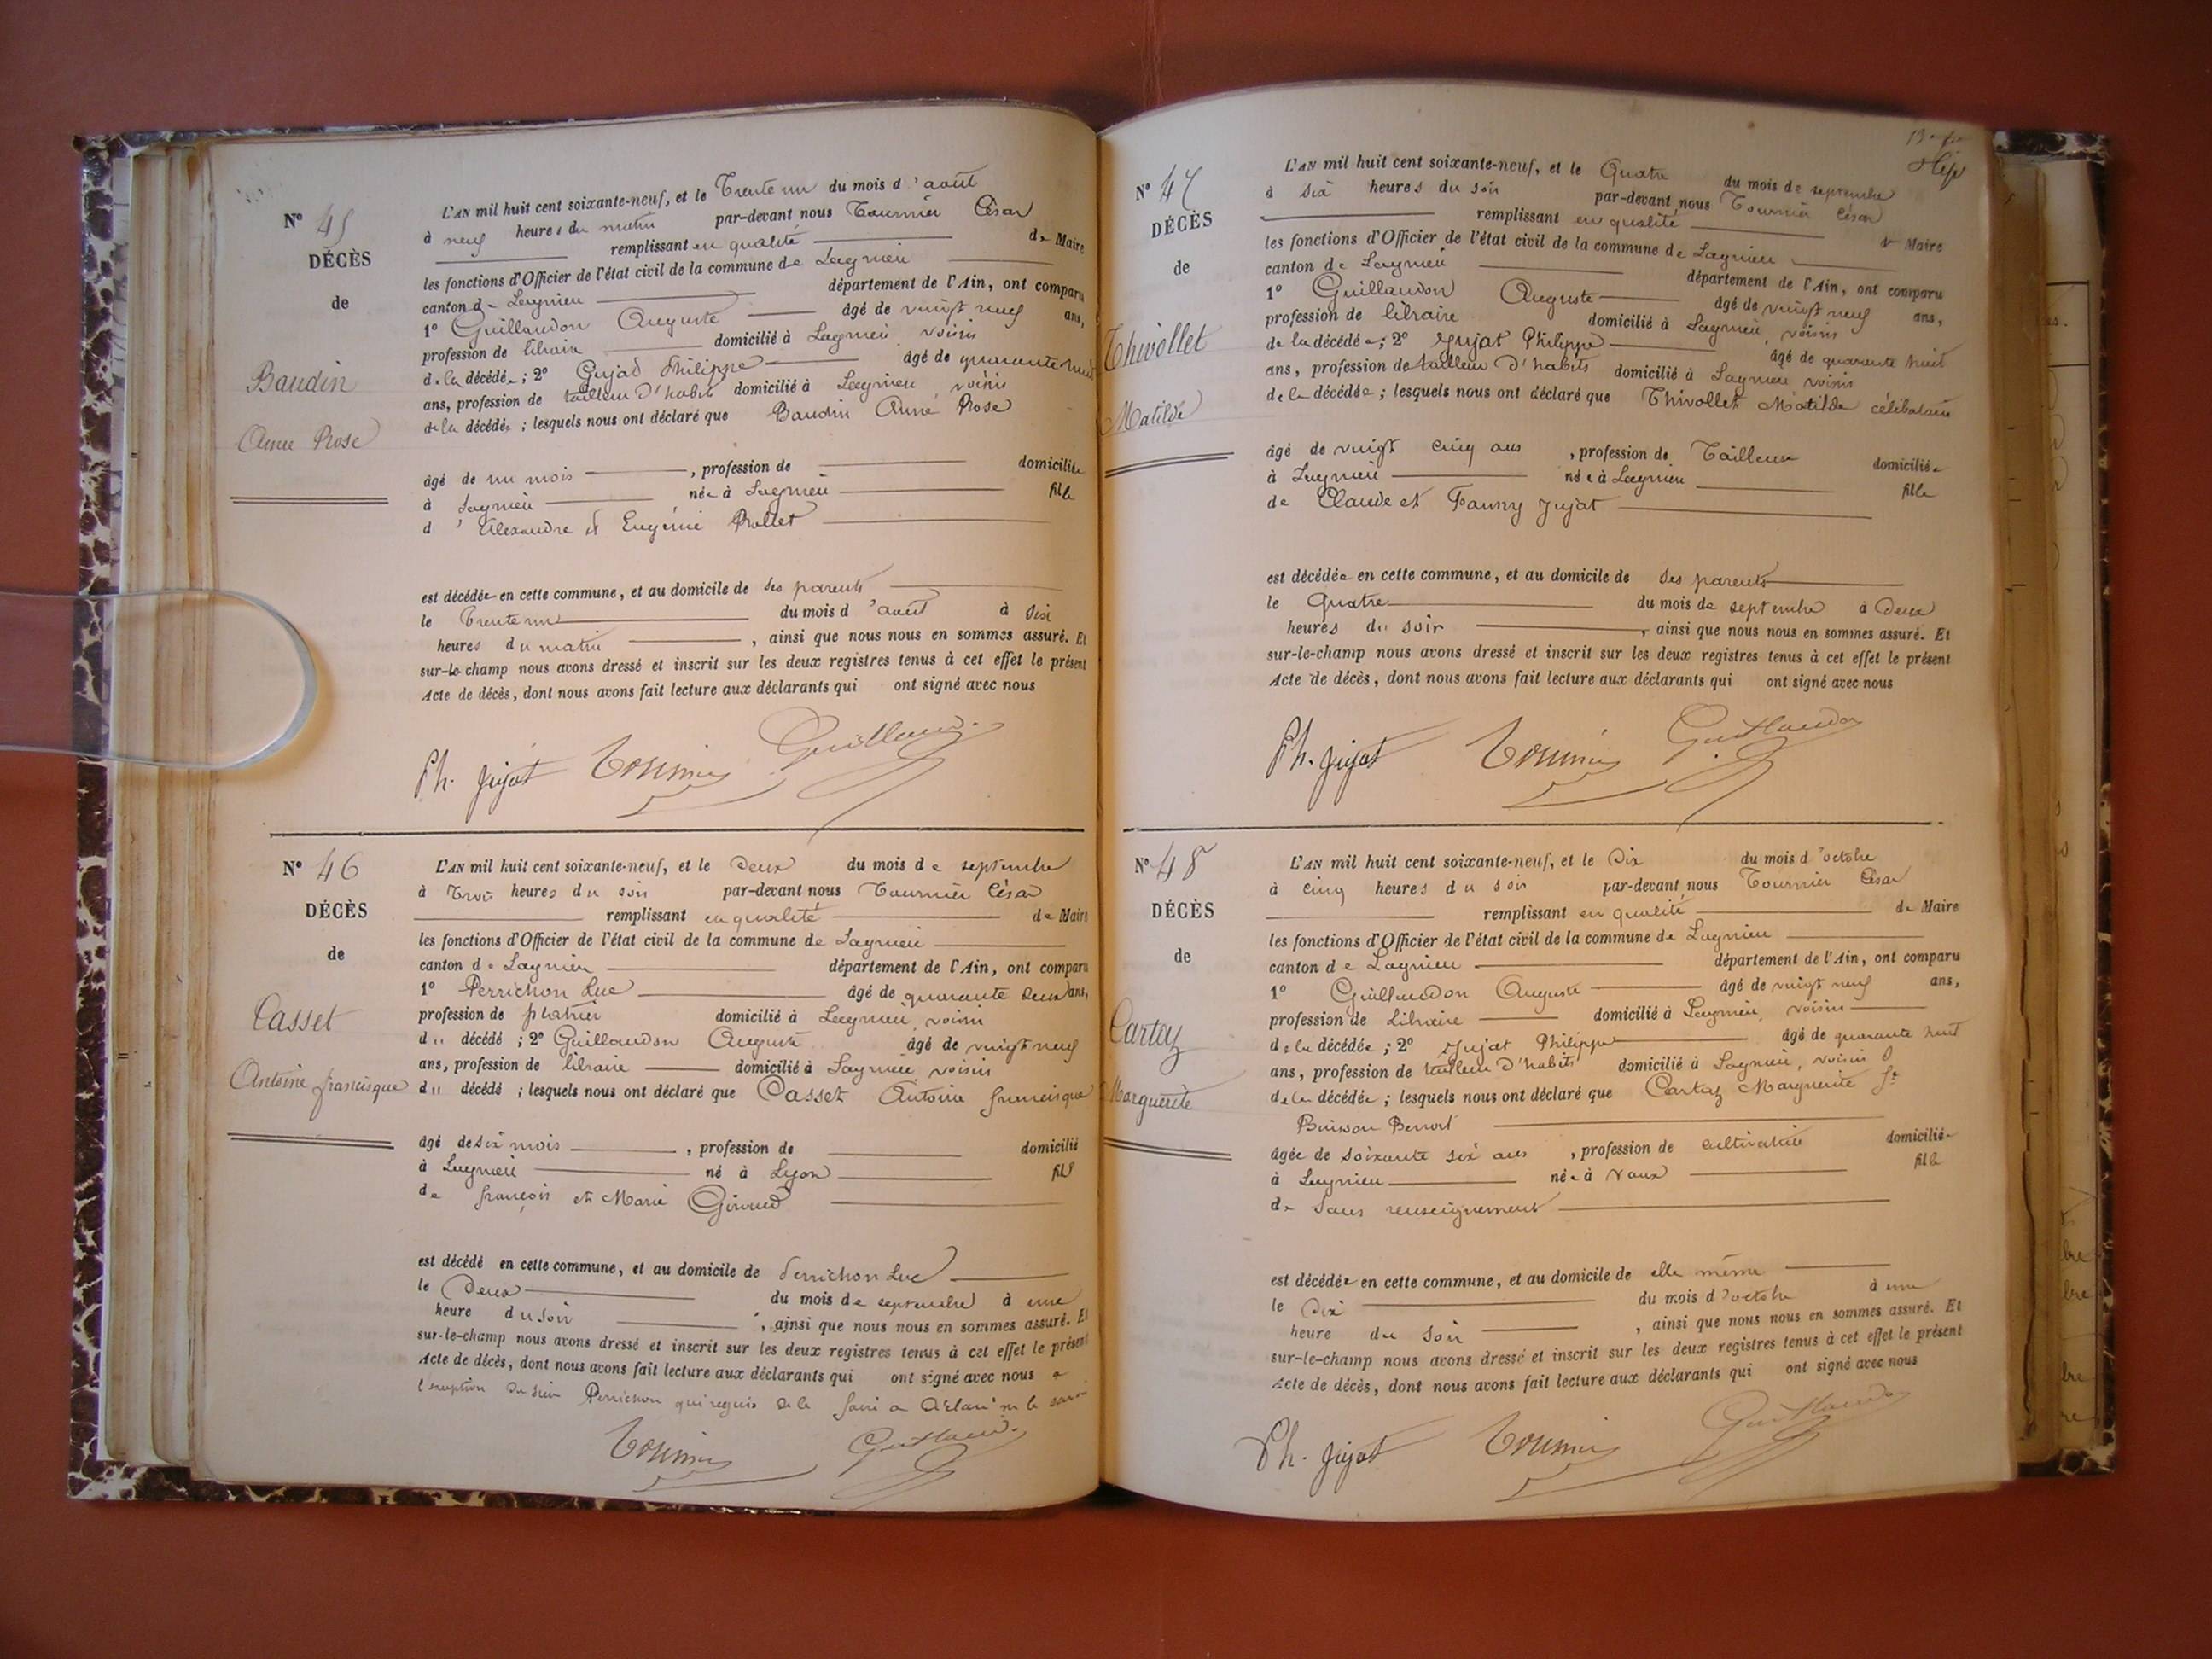 N° 45
DÉCÈS
de
Baudin
Anne Rose
L'AN mil huit cent soixante-neuf, et le Trente un du mois d'août
à neuf heures du matin par-devant nous Tournier César
remplissant en qualité de Maire
les fonctions d'Officier de l'état civil de la commune de Lagnieu
canton de Lagnieu département de l'Ain, ont comparu
1° Guillaudon Auguste âgé de vingt neuf ans,
profession de libraire domicilié à Lagnieu, voisin
de la décédée ; 2° Jujat Philippe âgé de quarante huit
ans, profession de tailleur d'habits domicilié à Lagnieu voisin
de la décédée ; lesquels nous ont déclaré que Baudin Anne Rose
âgé de un mois , profession de domiciliée
à Lagnieu née à Lagnieu fille
d'Alexandre et Eugénie Rollet
est décédée en cette commune, et au domicile de ses parents
le Trente un du mois d'août à six
heures du matin , ainsi que nous nous en sommes assuré. Et
sur-le-champ nous avons dressé et inscrit sur les deux registres tenus à cet effet le présent
Acte de décès, dont nous avons fait lecture aux déclarants qui ont signé avec nous
Ph. Jujat Tournier Guillaudon
N° 46
DÉCÈS
de
Casset
Antoine françisque
L'AN mil huit cent soixante-neuf, et le Deux du mois de septembre
à Trois heures du soir par-devant nous Tournier César
remplissant en qualité de Maire
les fonctions d'Officier de l'état civil de la commune de Lagnieu
canton de Lagnieu département de l'Ain, ont comparu
1° Perrichon Luc âgé de quarante deux ans,
profession de platrier domicilié à Lagnieu, voisin
du décédé ; 2° Guillaudon Auguste âgé de vingt neuf
ans, profession de libraire domicilié à Lagnieu voisin
du décédé ; lesquels nous ont déclaré que Casset Antoine françisque
âgé de six mois , profession de domicilié
à Lagnieu né à Lyon fils
de françois et Marie Giroud
est décédé en cette commune, et au domicile de Perrichon Luc
le Deux du mois de septembre à une
heure du soir , ainsi que nous nous en sommes assuré. Et
sur-le-champ nous avons dressé et inscrit sur les deux registres tenus à cet effet le présent
Acte de décès, dont nous avons fait lecture aux déclarants qui ont signé avec nous a
l'exception du sieur Perrichon qui requis de le faire a déclaré ne le savoir
Tournier Guillaudon
N° 47
DÉCÈS
de
Thivollet
Matilde
L'AN mil huit cent soixante-neuf, et le Quatre du mois de septembre
à six heures du soir par-devant nous Tournier César
remplissant en qualité de Maire
les fonctions d'Officier de l'état civil de la commune de Lagnieu
canton de Lagnieu département de l'Ain, ont comparu
1° Guillaudon Auguste âgé de vingt neuf ans,
profession de libraire domicilié à Lagnieu, voisin
de la décédée ; 2° Jujat Philippe âgé de quarante huit
ans, profession de tailleur d'habits domicilié à Lagnieu voisin
de la décédée ; lesquels nous ont déclaré que Thivollet Matilde célibataire
âgé de vingt cinq ans , profession de Tailleuse domiciliée
à Lagnieu née à Lagnieu fille
de Claude et Fanny Jujat
est décédée en cette commune, et au domicile de ses parents
le Quatre du mois de septembre à Deux
heures du soir , ainsi que nous nous en sommes assuré. Et
sur-le-champ nous avons dressé et inscrit sur les deux registres tenus à cet effet le présent
Acte de décès, dont nous avons fait lecture aux déclarants qui ont signé avec nous
Ph. Jujat Tournier Guillaudon
N° 48
DÉCÈS
de
Cartaz
Marguerite
L'AN mil huit cent soixante-neuf, et le Dix du mois d'octobre
à cinq heures du soir par-devant nous Tournier César
remplissant en qualité de Maire
les fonctions d'Officier de l'état civil de la commune de Lagnieu
canton de Lagnieu département de l'Ain, ont comparu
1° Guillaudon Auguste âgé de vingt neuf ans,
profession de Libraire domicilié à Lagnieu, voisin
de la décédée ; 2° Jujat Philippe âgé de quarante huit
ans, profession de tailleur d'habits domicilié à Lagnieu, voisin
de la décédée ; lesquels nous ont déclaré que Cartaz Marguerite fe
Buisson Benoit
âgée de soixante six ans , profession de cultivatrice domiciliée
à Lagnieu née à Vaux fille
de Sans renseignement
est décédée en cette commune, et au domicile de elle même
le Dix du mois d'octobre à une
heure du soir , ainsi que nous nous en sommes assuré. Et
sur-le-champ nous avons dressé et inscrit sur les deux registres tenus à cet effet le présent
Acte de décès, dont nous avons fait lecture aux déclarants qui ont signé avec nous
Ph. Jujat Tournier Guillaudon